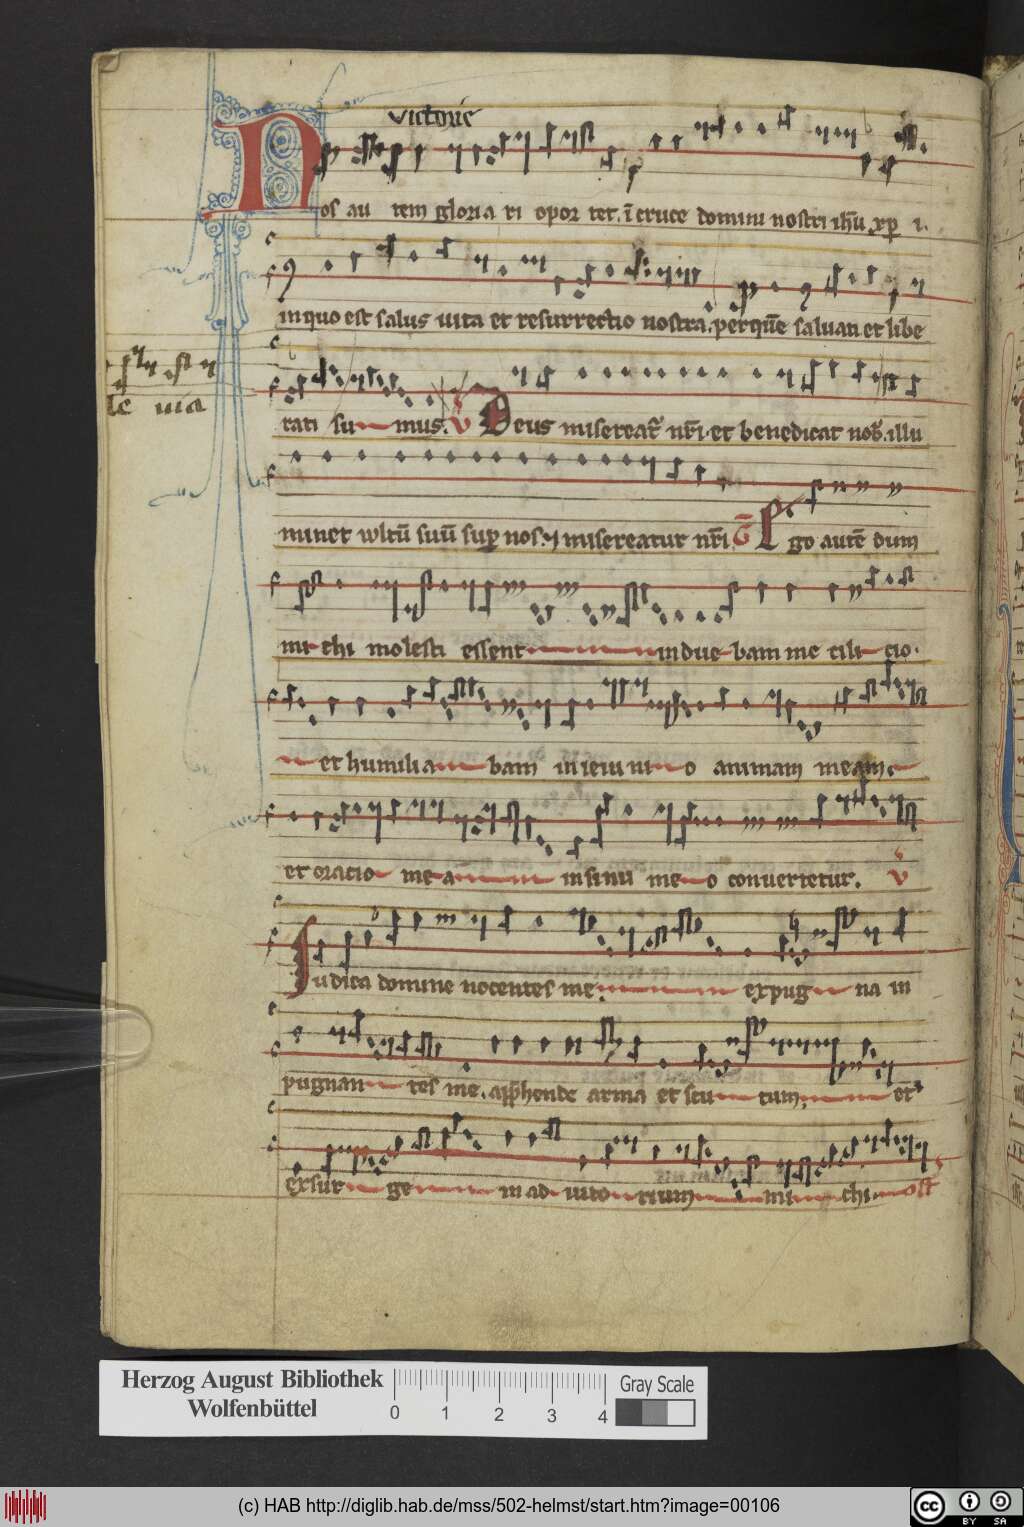 victorie
Nos au tem gloria ri opor tet. ī cruce domini nostri ih̄u xp̄ i.
in quo est salus uita et resurrectio nostra. per quē saluati et libe
le uia
rati su mus. V Deus misereat᷑ nr̄i. et benedicat nob᷒. illu
minet wltū suū suꝑ nos. ⁊ misereatur nr̄i. G Ego autē dum
mi chi molesti essent induebam me cilicio.
et humilia bam in ieiuni o animam meam.
et oracio me a in sinu me o conuertetur. V
Iudica domine nocentes me. expug na in
pugnan tes me. app̄hende arma et scu tum. et
exsur ge in ad iuto rium mi chi.
Herzog August Bibliothek
Wolfenbüttel
0 1 2 3 4
Gray Scale
(c) HAB http://diglib.hab.de/mss/502-helmst/start.htm?image=00106
cc BY SA